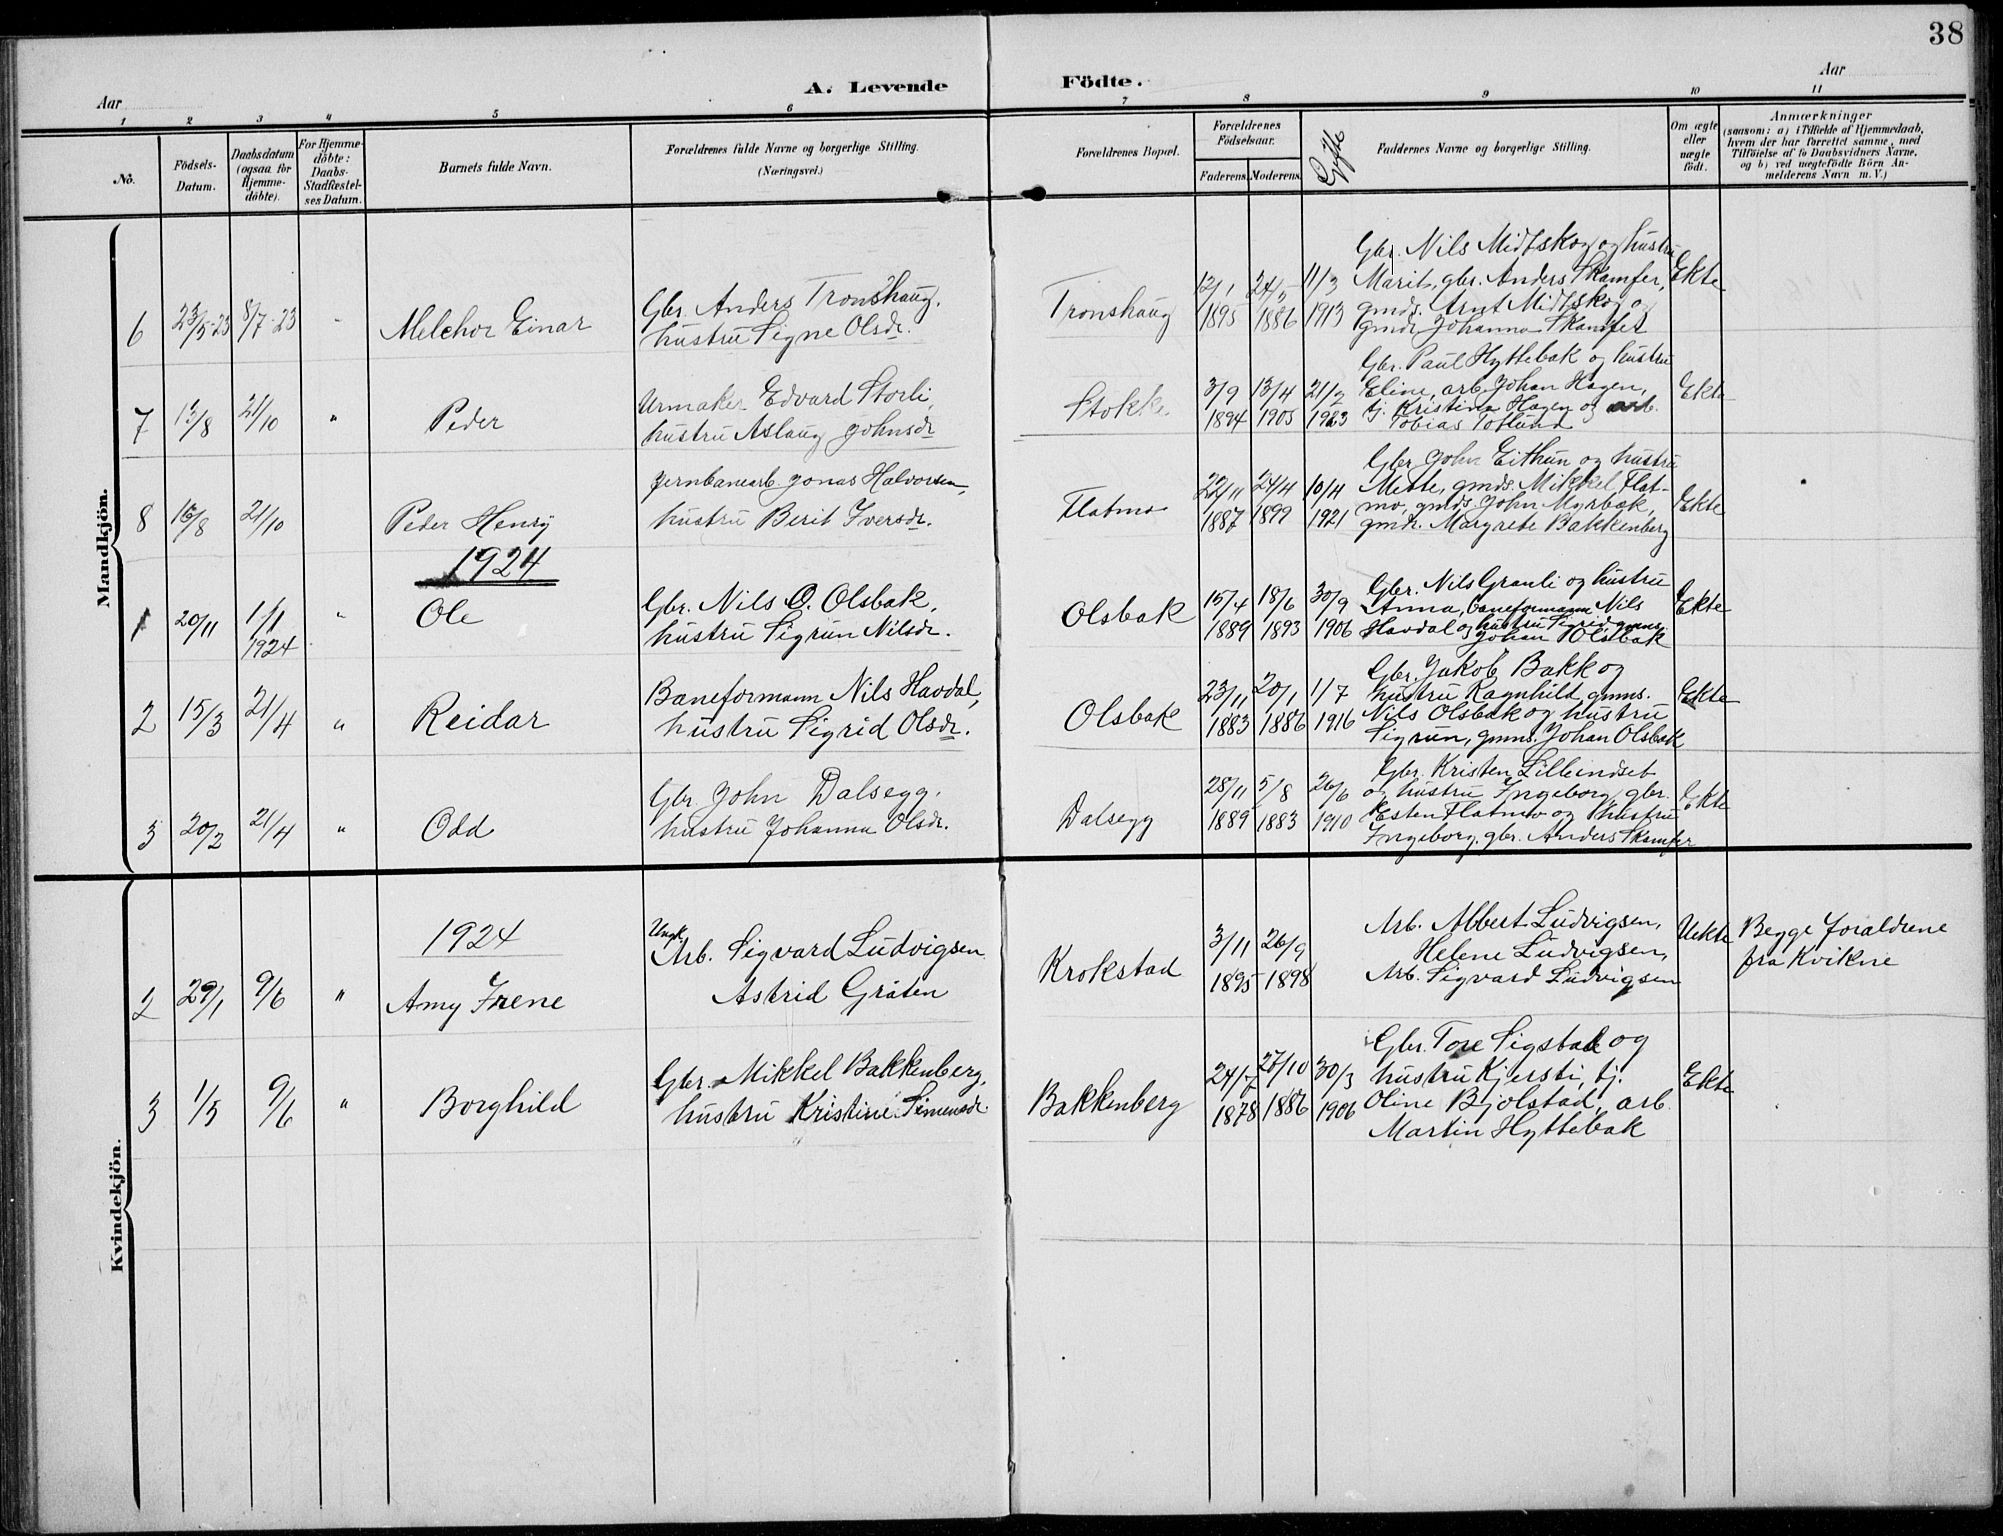 38
Aar
A. Levende Födte.
Aar
1 2 3 4 5 6 7 8 9 10 11
No.
Födsels-
Datum.
Daabsdatum
(ogsaa for
Hjemme-
döbte).
For Hjemme-
döbte:
Daabs-
Stadfæstel-
ses Datum.
Barnets fulde Navn.
Forældrenes fulde Navne og borgerlige Stilling.
(Næringsvei.)
Forældrenes Bopæl.
Forældrenes
Födselsaar.
Faderens. Moderens.
Gifte
Faddernes Navne og borgerlige Stilling.
Om ægte
eller
uægte
födt.
Anmærkninger
(saasom: a) i Tilfælde af Hjemmedaab,
hvem der har forrettet samme, med
Tilföielse af to Daabsvidners Navne,
og b) ved uægtefödte Börn An-
melderens Navn m. V.)
Mandkjön.
6 23/5-23 8/7-23 " Melchor Einar
Gbr. Anders Tronshaug,
hustru Signe Olsdr.
Tronshaug
12/1 1895
24/5 1886
11/3 1913
Gbr. Nils Midtskog og hustru
Marit, gbr. Anders Skamfer,
gmds. Arnt Midtskog og
gmdr. Johanna Skamfer
Ekte
7 13/8 21/10 " Peder
Urmaker Edvard Storli,
hustru Aslaug Johnsdr
Stokke
3/9 1894
13/4 1905
21/2 1923
Gbr. Paul Hyttebak og hustru
Eline, arb. Johan Hagen,
tj. Kristina Hagen og arb.
Tobias Totlund
Ekte
8 16/8 21/10 Peder Henry
Jernbanearb Jonas Halvorsen,
hustru Berit Iversdr.
Flatmo
22/11 1887
24/4 1899
10/4 1921
Gbr John Eithun og hustru
Mette, gmds. Mikkel Flat-
mo, gmds John Myrbak,
gmdr. Margrete Bakkenberg
Ekte
1924
1 20/11 1/1 1924 " Ole
Gbr. Nils O. Olsbak,
hustru Sigrun Nilsdr.
Olsbak
15/4 1889
18/6 1893
30/9 1906
Gbr. Nils Granli og hustru
Anna, baneformann Nils
Havdal og hustru Sigrid, gmns.
Johan Olsbak
Ekte
2 15/3 21/4 " Reidar
Baneformann Nils Havdal,
hustru Sigrid Olsdr.
Olsbak
23/11 1883
20/1 1886
1/7 1916
Gbr. Jakob Bakk og
hustru Ragnhild, gmns.
Nils Olsbak og hustru
Sigrun, gmns. Johan Olsbak
Ekte
3 20/2 21/4 " Odd
Gbr John Dalsegg,
hustru Johanna Olsdr.
Dalsegg
28/11 1889
5/8 1883
26/6 1910
Gbr. Kristen Lilleindset
og hustru Ingeborg, gbr.
Esten Flatmo og hustru
Ingeborg, gbr. Anders Skamfer
Ekte
Kvindekjön.
1924
2 29/1 9/6 " Amy Irene
Ungk.
Arb. Sigvard Ludvigsen
Astrid Gråten
Krokstad
3/11 1895
26/9 1898
Arb. Albert Ludvigsen,
Helene Ludvigsen,
Arb. Sigvard Ludvigsen
Uekte
Begge foraldrene
fra Kvikne
3 1/5 9/6 " Borghild
Gbr. Mikkel Bakkenberg,
hustru Kristine Simensdr
Bakkenberg
24/7 1878
27/10 1886
30/3 1906
Gbr. Tore Sigstad og
hustru Kjersti, tj.
Oline Bjolstad, arb.
Martin Hyttebak
Ekte